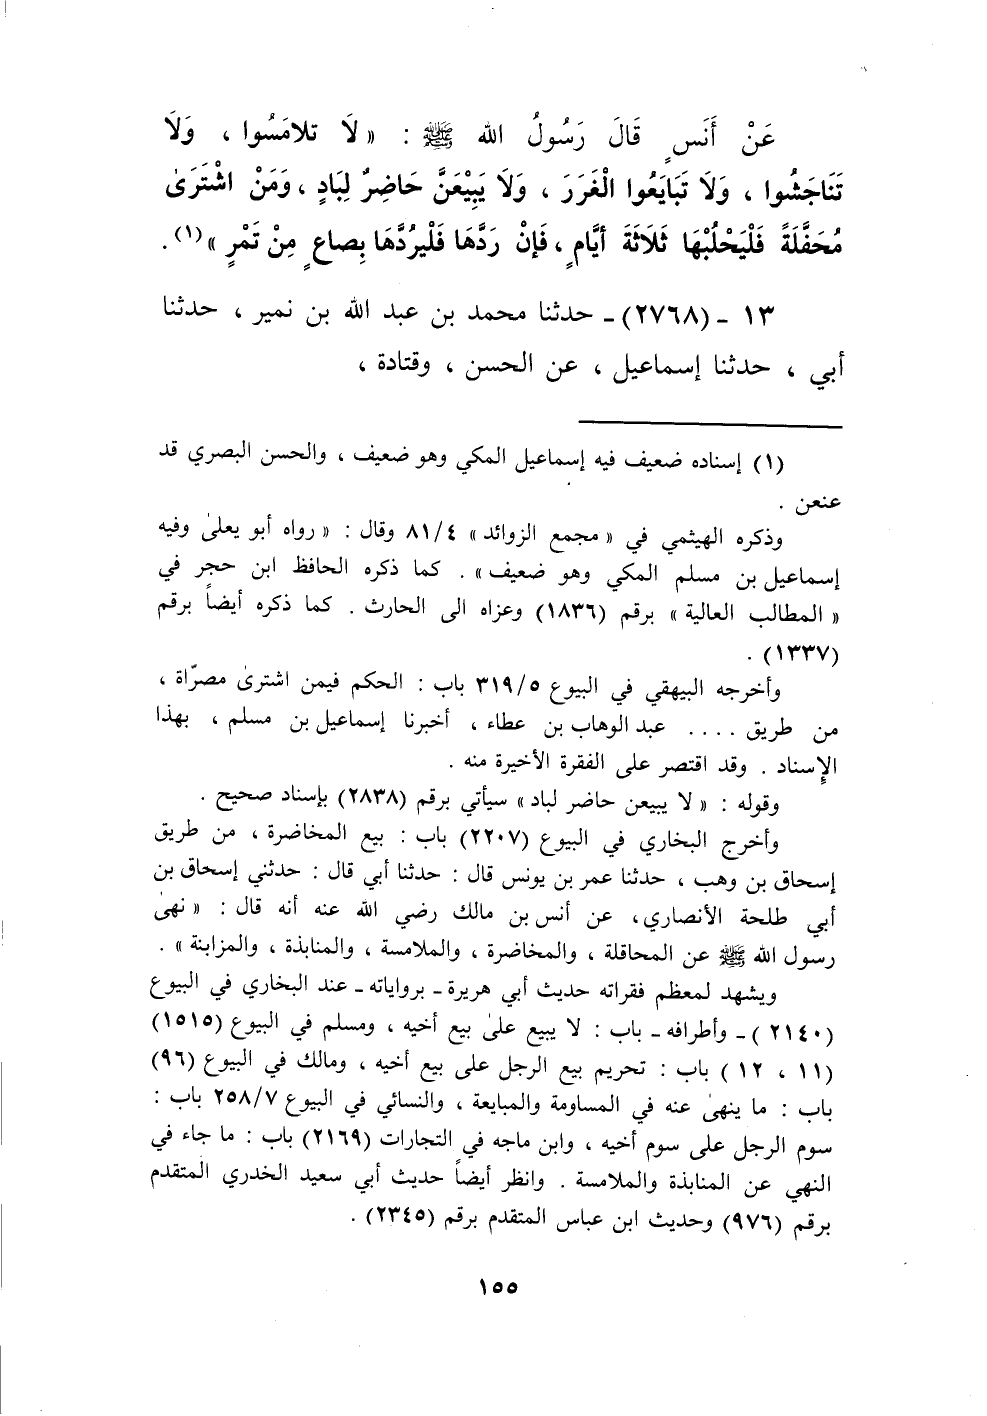 عَنْ أَنَسٍ قَالَ رَسُولُ الله ﷺ : « لَا تلامَسُوا ، وَلَا
تَنَاجَشُوا ، وَلَا تَبَايَعُوا الْغَرَرَ ، وَلَا يَبِيْعَنَّ حَاضِرٌ لِبَادٍ ، وَمَنْ اشْتَرَىٰ
مُحَفَّلَةً فَلْيَحْلُبْهَا ثَلَاثَةَ أَيَّامٍ ، فَإِنْ رَدَّهَا فَلْيَرُدَّهَا بِصاعٍ مِنْ تَمْرٍ »(١) .
١٣ ـ (٢٧٦٨) ـ حدثنا محمد بن عبد الله بن نمير ، حدثنا
أبي ، حدثنا إسماعيل ، عن الحسن ، وقتادة ،
(١) إسناده ضعيف فيه إسماعيل المكي وهو ضعيف ، والحسن البصري قد
عنعن .
وذكره الهيثمي في « مجمع الزوائد » ٨١/٤ وقال : « رواه أبو يعلىٰ وفيه
إسماعيل بن مسلم المكي وهو ضعيف » . كما ذكره الحافظ ابن حجر في
« المطالب العالية » برقم (١٨٣٦) وعزاه الى الحارث . كما ذكره أيضاً برقم
(١٣٣٧) .
وأخرجه البيهقي في البيوع ٣١٩/٥ باب : الحكم فيمن اشترىٰ مصرّاة ،
من طريق .... عبد الوهاب بن عطاء ، أخبرنا إسماعيل بن مسلم ، بهذا
الإِسناد . وقد اقتصر على الفقرة الأخيرة منه .
وقوله : « لا يبيعن حاضر لباد » سيأتي برقم (٢٨٣٨) بإسناد صحيح .
وأخرج البخاري في البيوع (٢٢٠٧) باب : بيع المخاضرة ، من طريق
إسحاق بن وهب ، حدثنا عمر بن يونس قال : حدثنا أبي قال : حدثني إسحاق بن
أبي طلحة الأنصاري، عن أنس بن مالك رضي الله عنه أنه قال : « نهىٰ
رسول الله ﷺ عن المحاقلة ، والمخاضرة ، والملامسة ، والمنابذة ، والمزابنة » .
ويشهد لمعظم فقراته حديث أبي هريرة ـ برواياته ـ عند البخاري في البيوع
(٢١٤٠) ـ وأطرافه ـ باب : لا يبيع علىٰ بيع أخيه ، ومسلم في البيوع (١٥١٥)
(١١ ، ١٢) باب : تحريم بيع الرجل على بيع أخيه ، ومالك في البيوع (٩٦)
باب : ما ينهىٰ عنه في المساومة والمبايعة ، والنسائي في البيوع ٢٥٨/٧ باب :
سوم الرجل على سوم أخيه ، وابن ماجه في التجارات (٢١٦٩) باب : ما جاء في
النهي عن المنابذة والملامسة . وانظر أيضاً حديث أبي سعيد الخدري المتقدم
برقم (٩٧٦) وحديث ابن عباس المتقدم برقم (٢٣٤٥) .
١٥٥